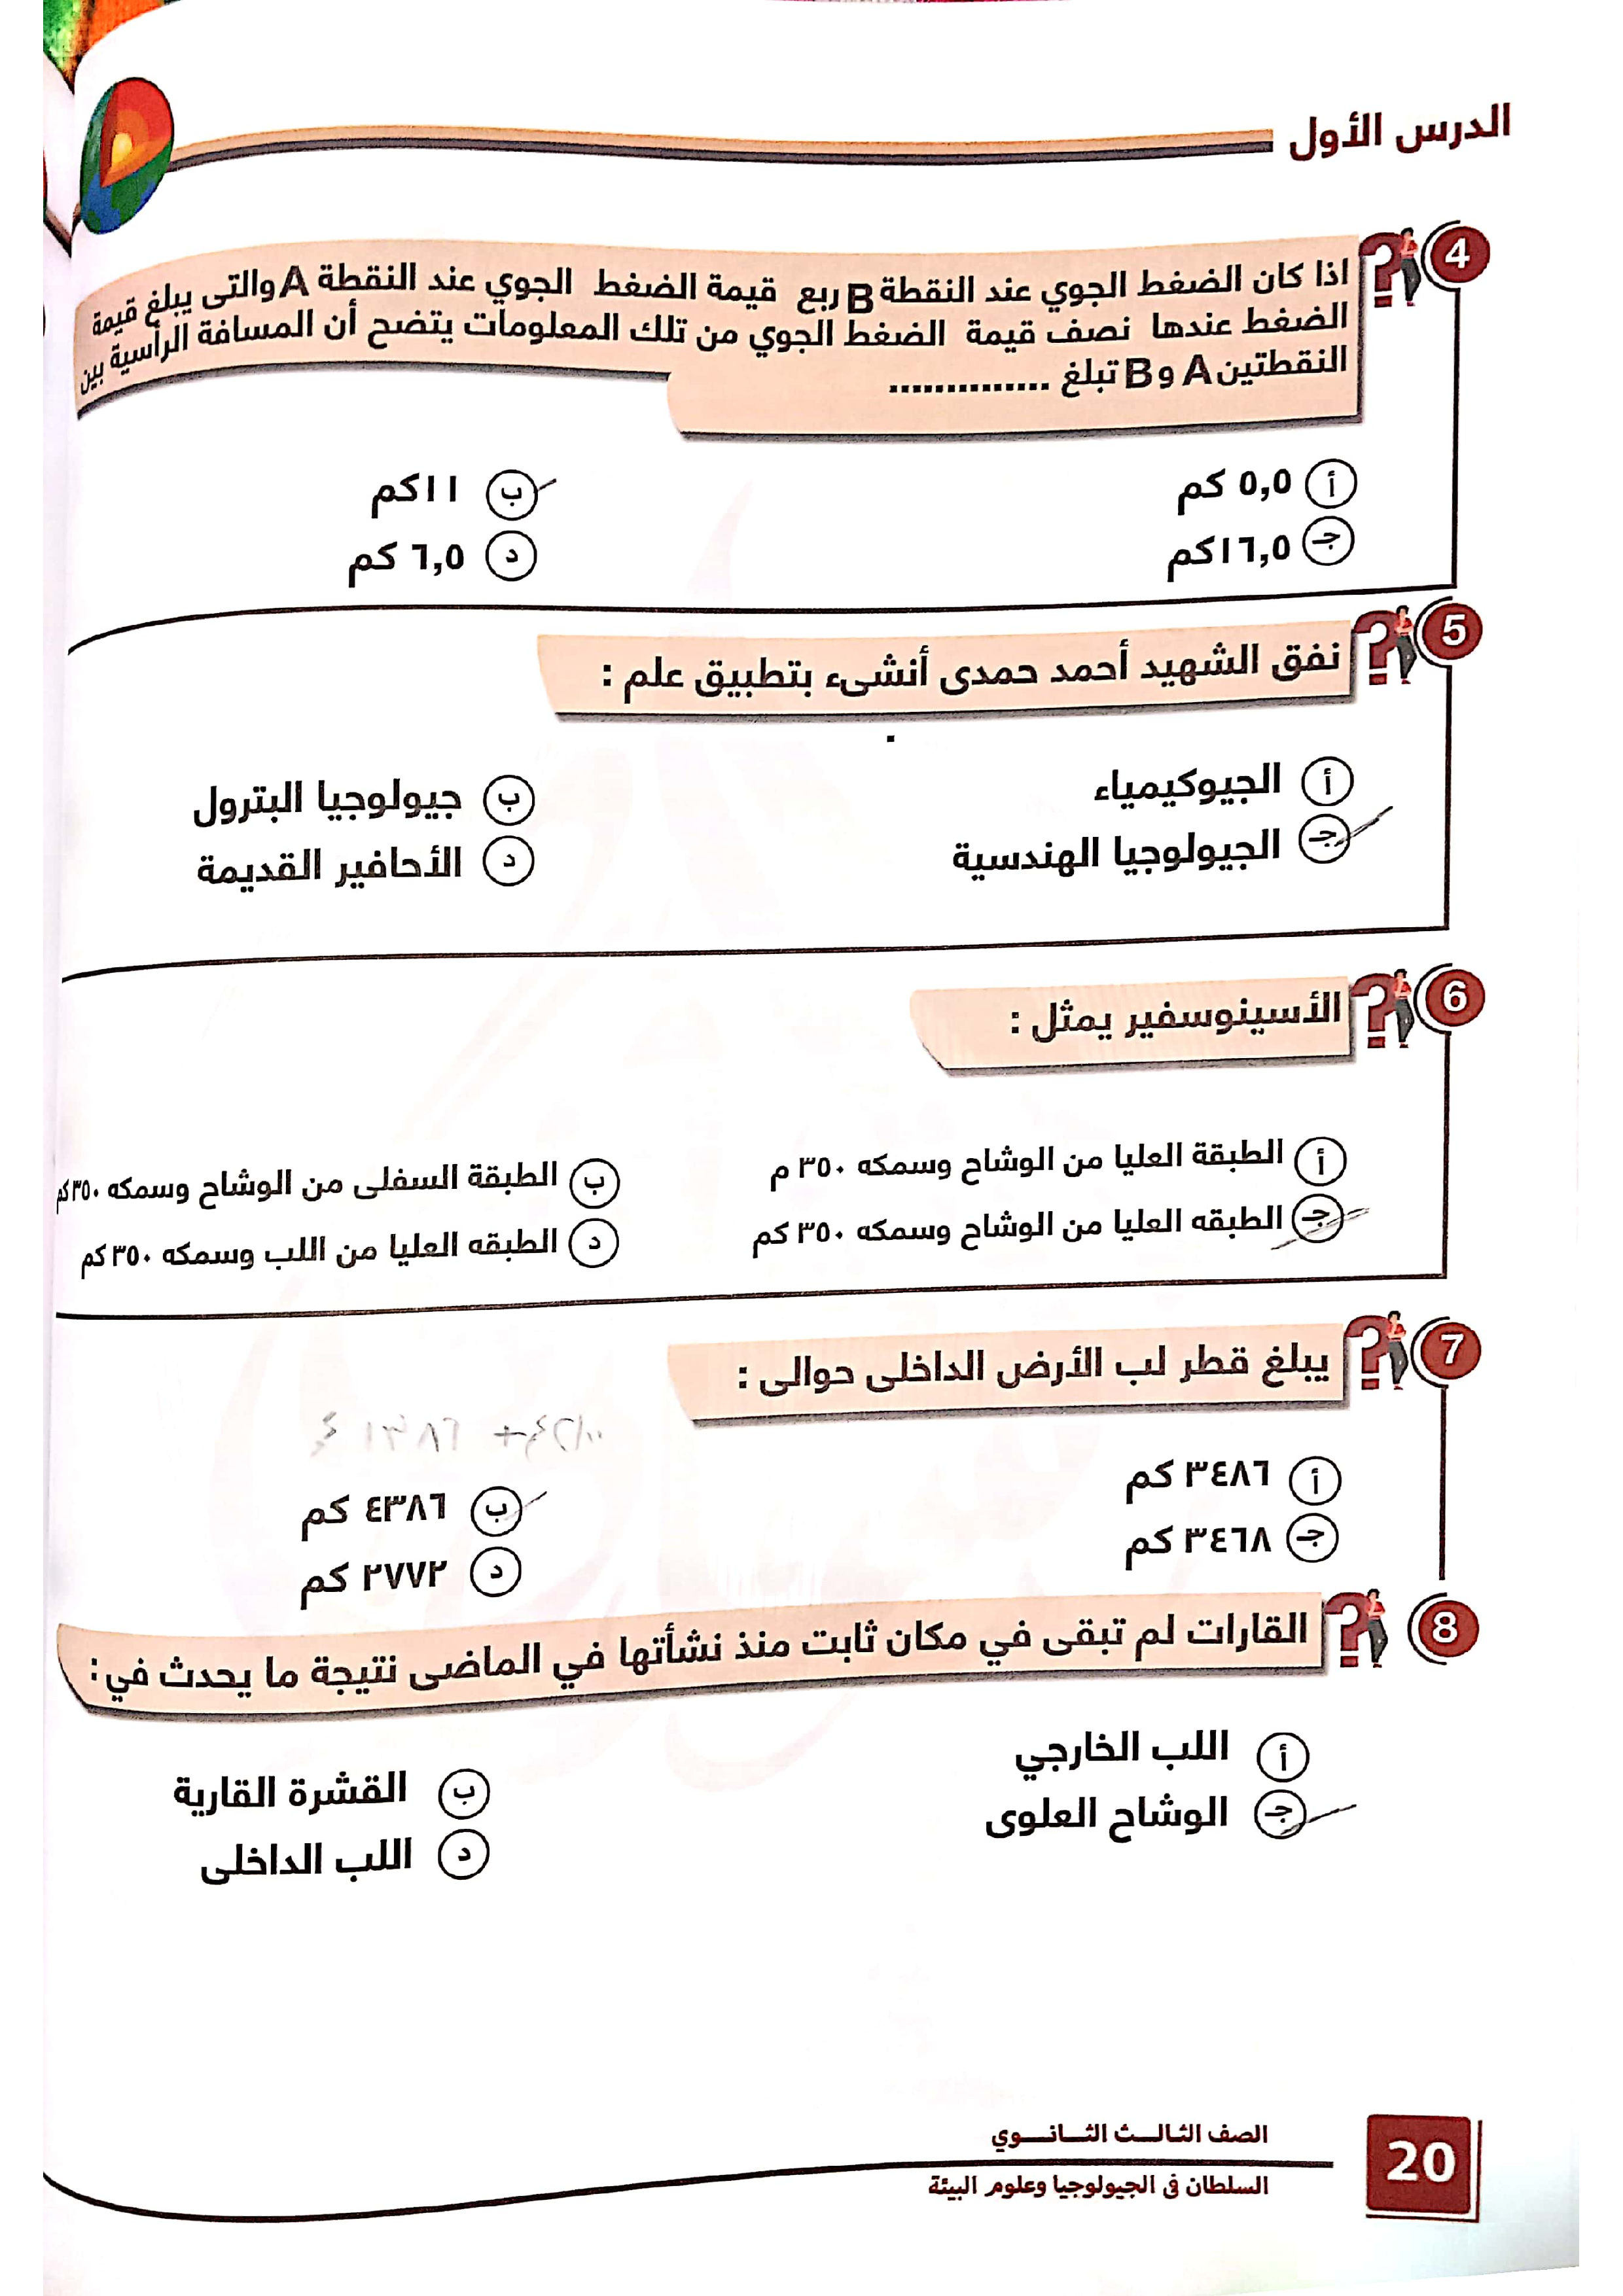 الدرس الأول
4
اذا كان الضغط الجوي عند النقطة B ربع قيمة الضغط الجوي عند النقطة A والتى يبلغ قيمة
الضغط عندها نصف قيمة الضغط الجوي من تلك المعلومات يتضح أن المسافة الرأسية بين
النقطتين A و B تبلغ ..............
أ ٥,٥ كم
ب ١١ كم
جـ ١٦,٥ كم
د ٦,٥ كم
5
نفق الشهيد أحمد حمدى أنشىء بتطبيق علم :
أ الجيوكيمياء
ب جيولوجيا البترول
جـ الجيولوجيا الهندسية
د الأحافير القديمة
6
الأسينوسفير يمثل :
أ الطبقة العليا من الوشاح وسمكه ٣٥٠ م
ب الطبقة السفلى من الوشاح وسمكه ٣٥٠ كم
جـ الطبقه العليا من الوشاح وسمكه ٣٥٠ كم
د الطبقه العليا من اللب وسمكه ٣٥٠ كم
7
يبلغ قطر لب الأرض الداخلى حوالى :
أ ٣٤٨٦ كم
ب ٤٣٨٦ كم
جـ ٣٤٦٨ كم
د ٢٧٧٢ كم
8
القارات لم تبقى في مكان ثابت منذ نشأتها في الماضى نتيجة ما يحدث في :
أ اللب الخارجي
ب القشرة القارية
جـ الوشاح العلوى
د اللب الداخلى
الصف الثالــث الثــانــــوي
السلطان فى الجيولوجيا وعلوم البيئة
20